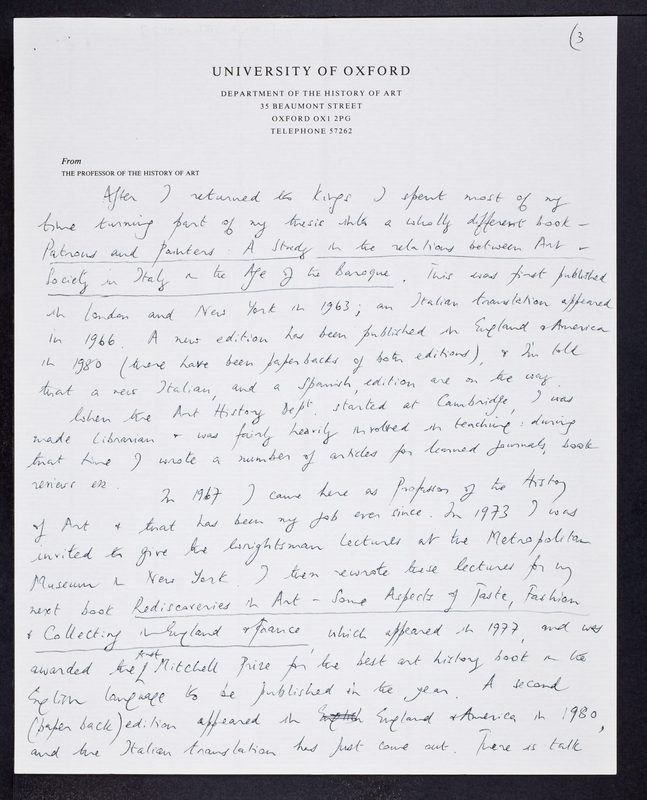 (3
UNIVERSITY OF OXFORD
DEPARTMENT OF THE HISTORY OF ART
35 BEAUMONT STREET
OXFORD OX1 2PG
TELEPHONE 57262
From
THE PROFESSOR OF THE HISTORY OF ART
After I returned to Kings I spent most of my
time turning part of my thesis into a wholly different book –
Patrons and Painters. A Study in the relations between Art &
Society in Italy in the Age of the Baroque. This was first published
in London and New York in 1963; an Italian translation appeared
in 1966. A new edition has been published in England & America
in 1980 (there have been paperbacks of both editions), & I'm told
that a new Italian, and a Spanish, edition are on the way.
When the Art History Dept. started at Cambridge, I was
made Librarian & was fairly heavily involved in teaching: during
that time I wrote a number of articles for learned journals, book
reviews etc.
In 1967 I came here as Professor of the History
of Art & that has been my job ever since. In 1973 I was
invited to give the Wrightsman Lectures at the Metropolitan
Museum in New York. I then rewrote these lectures for my
next book Rediscoveries in Art – Some Aspects of Taste, Fashion
& Collecting in England & France, which appeared in 1977, and was
awarded the first Mitchell Prize for the best art history book in the
English language to be published in the year. A second
(paper back) edition appeared in English England & America in 1980,
and the Italian translation has just come out. There is talk